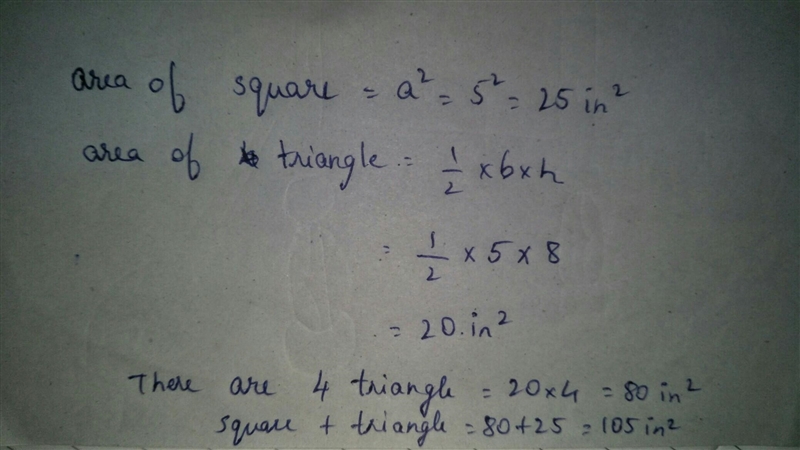 area of square = a² = 5² = 25 in²
area of triangle = 1/2 × b × h
= 1/2 × 5 × 8
= 20.in²
There are 4 triangle = 20×4 = 80 in²
square + triangle = 80+25 = 105 in²